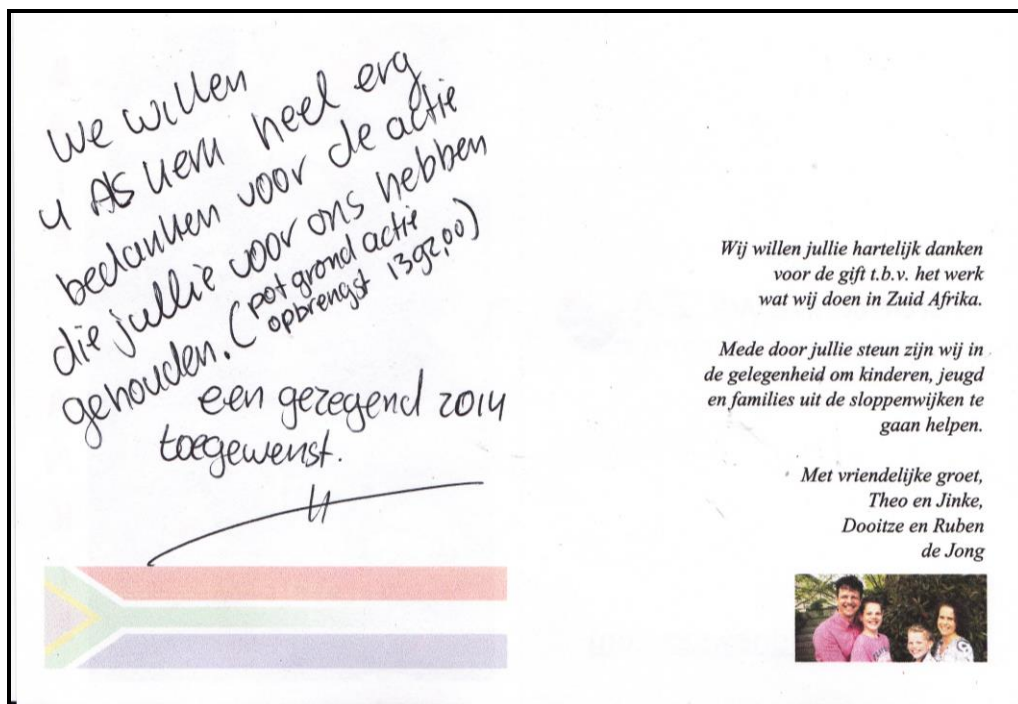 We willen
u Als kerk heel erg
bedanken voor de actie
die jullie voor ons hebben
gehouden. (pot grond actie
opbrengst 1392,00)
een gezegend 2014
toegewenst.
Wij willen jullie hartelijk danken
voor de gift t.b.v. het werk
wat wij doen in Zuid Afrika.
Mede door jullie steun zijn wij in
de gelegenheid om kinderen, jeugd
en families uit de sloppenwijken te
gaan helpen.
Met vriendelijke groet,
Theo en Jinke,
Dooitze en Ruben
de Jong